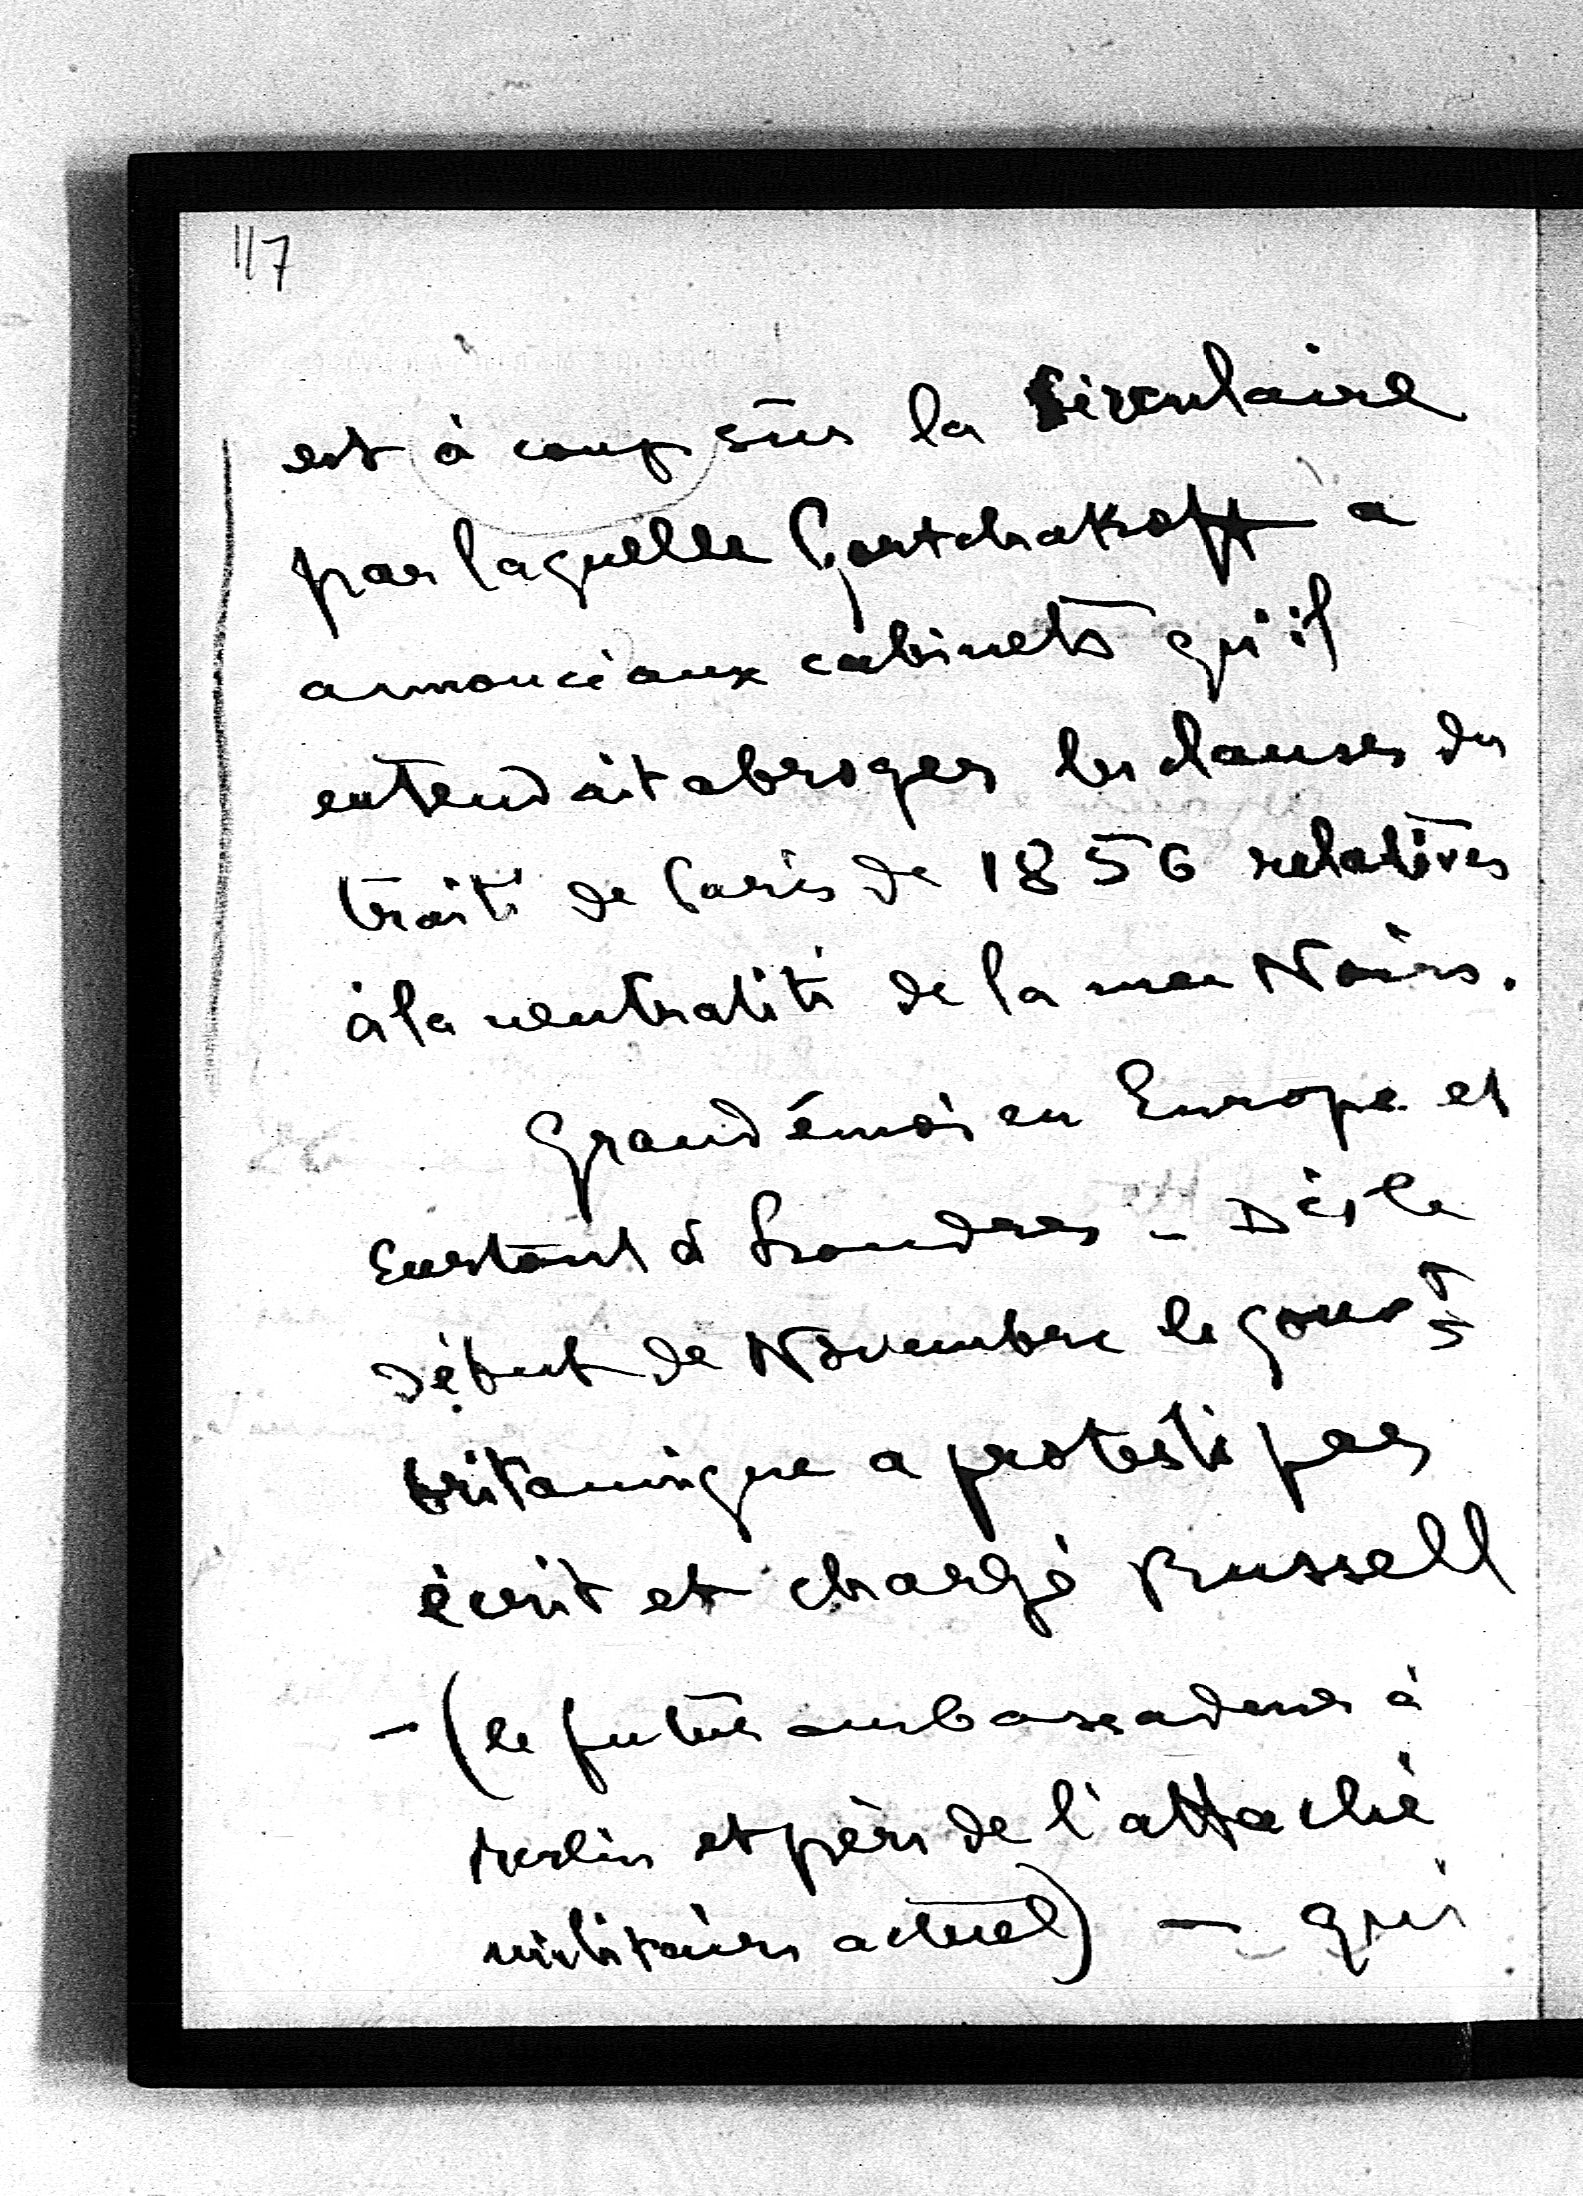 117
est à coup sûr la circulaire
par laquelle Gortchakoff a
annoncé aux cabinets qu'il
entendait abroger les clauses du
traité de Paris de 1856 relatives
à la neutralité de la mer Noire.
Grand émoi en Europe et
surtout à Londres – Dès le
début de Novembre le gouvt
britannique a protesté par
écrit et chargé Russell
– (le futur ambassadeur à
Berlin et père de l'attaché
militaire actuel) – qui